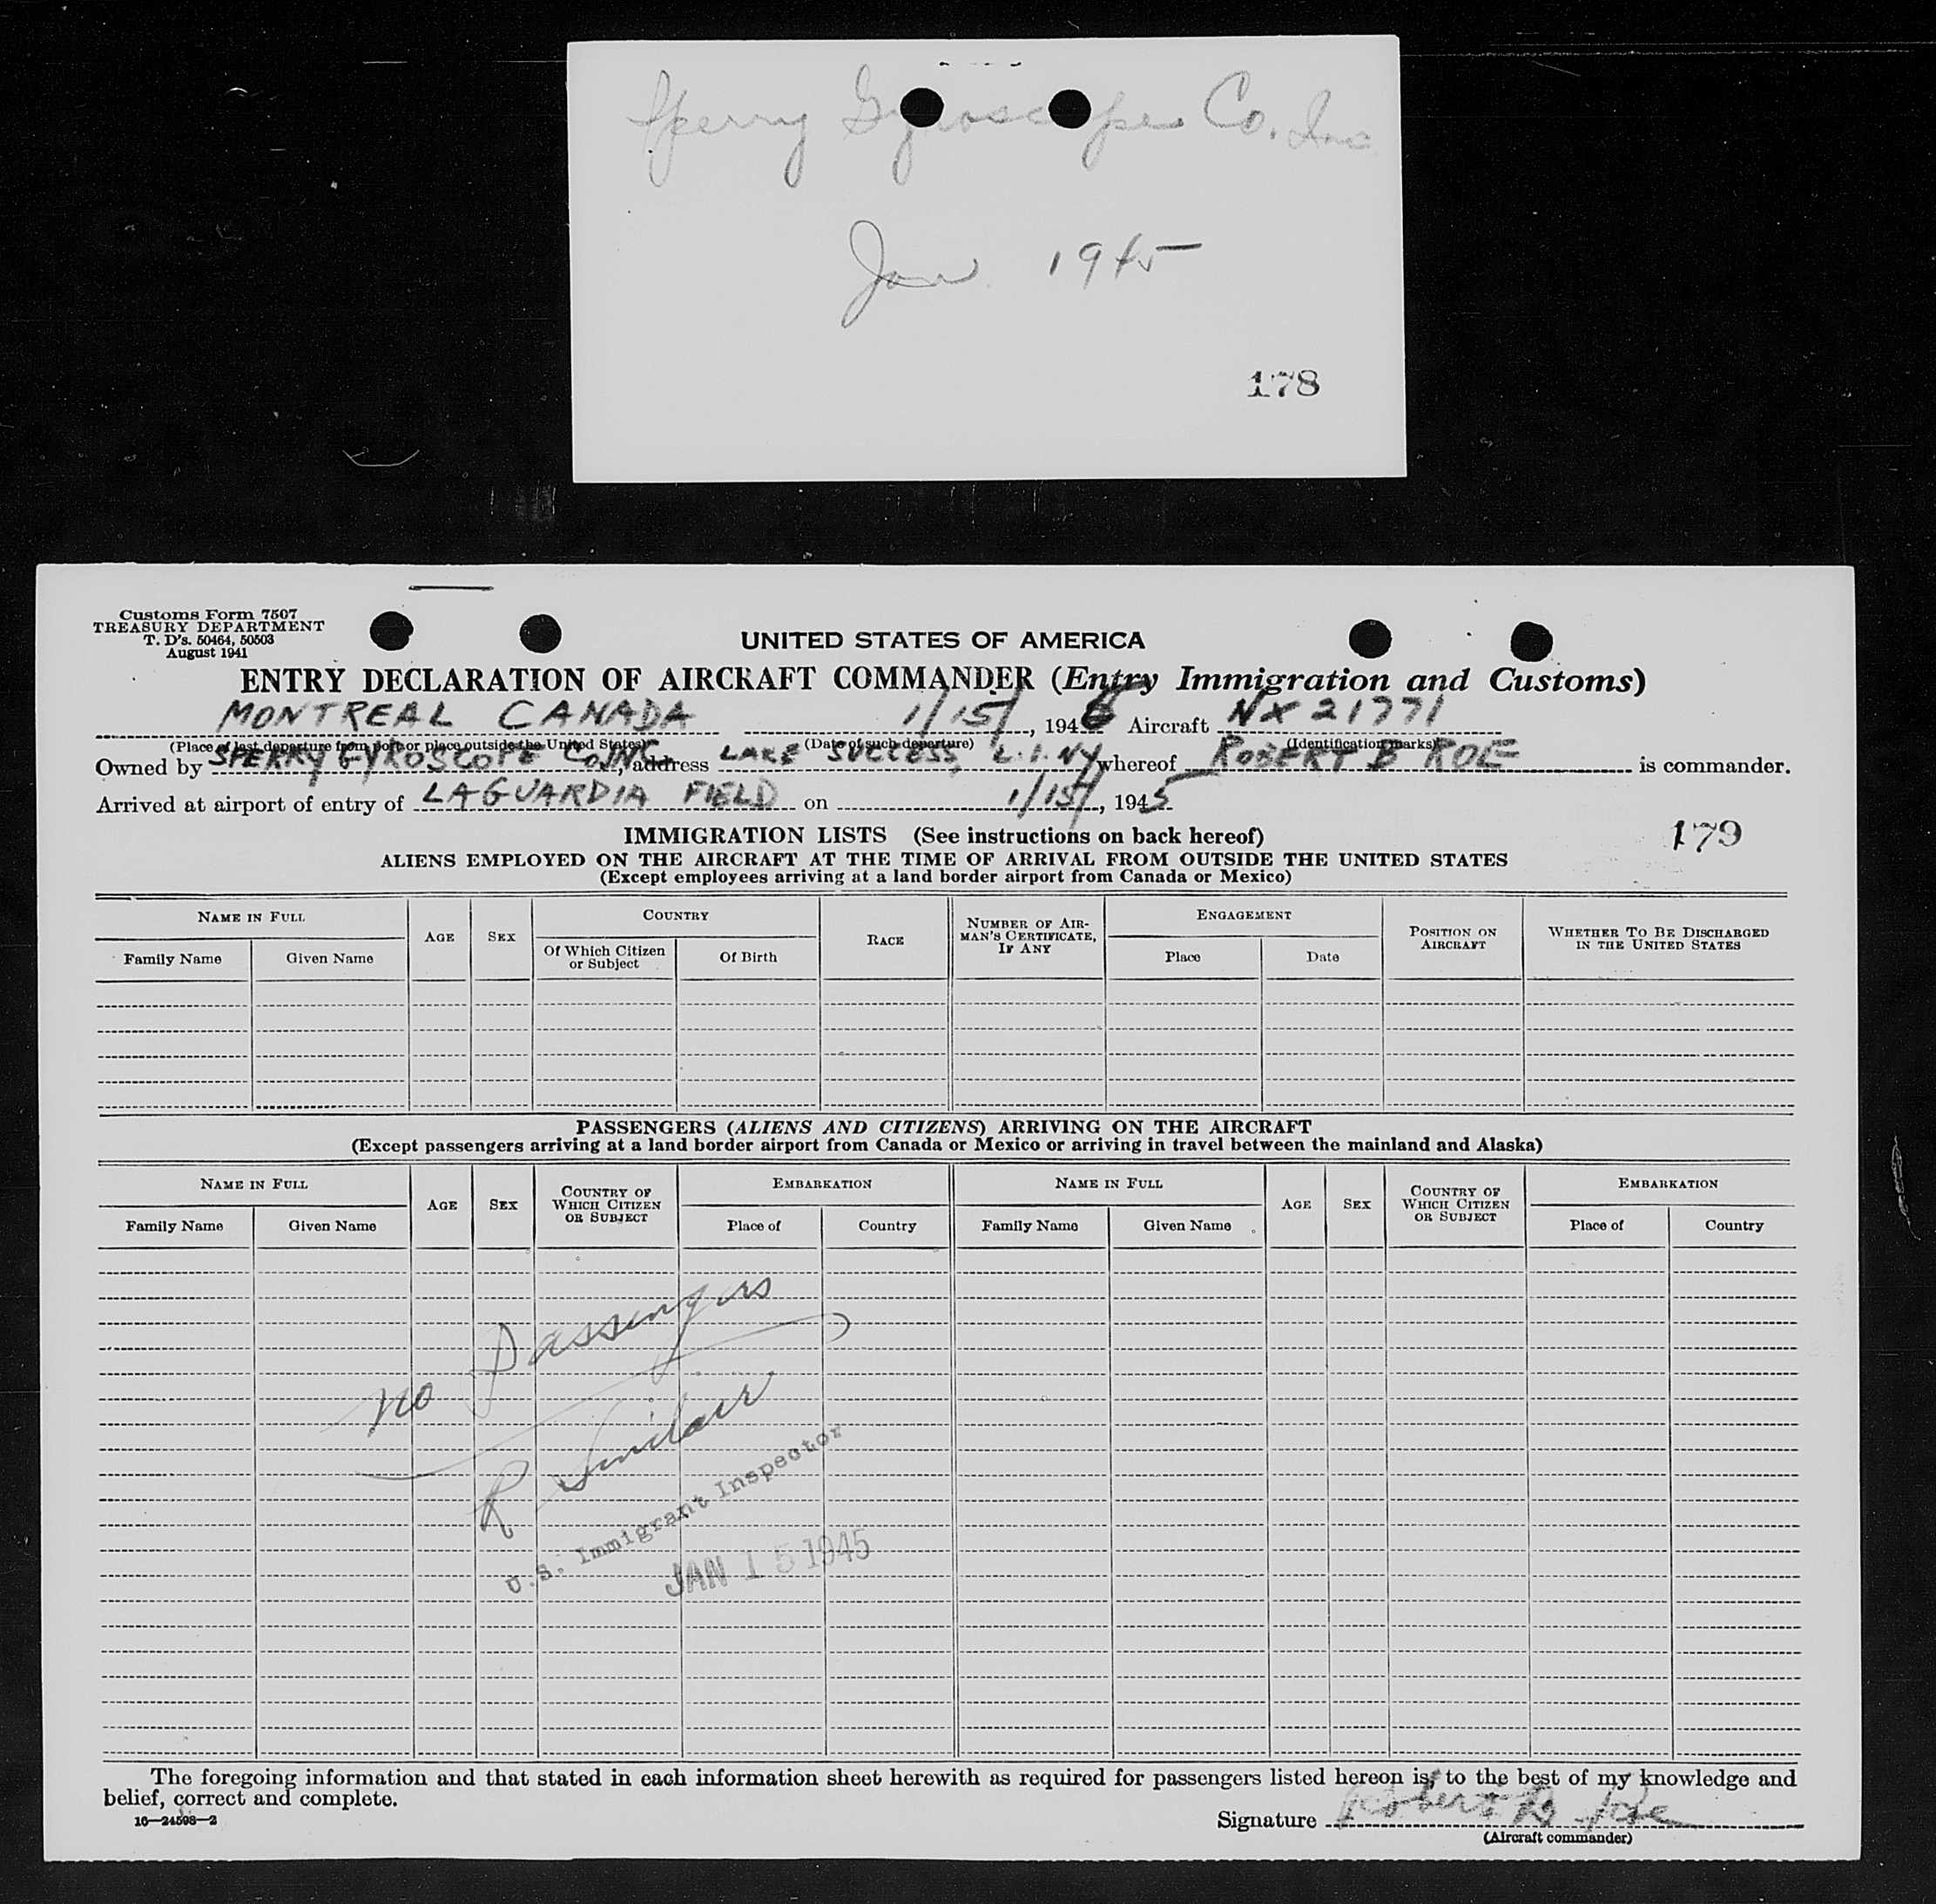 Sperry Gyroscope Co. Inc
Jan 1945
178
Customs Form 7507
TREASURY DEPARTMENT
T. D's. 50464, 50503
August 1941
UNITED STATES OF AMERICA
ENTRY DECLARATION OF AIRCRAFT COMMANDER (Entry Immigration and Customs)
MONTREAL CANADA 1/15/, 1945 Aircraft NX21771
(Place of last departure from port or place outside the United States) (Date of such departure) (Identification marks)
Owned by SPERRY GYROSCOPE CO. INC., address LAKE SUCCESS, L.I. NY whereof ROBERT B ROE is commander.
Arrived at airport of entry of LAGUARDIA FIELD on 1/15/, 1945
179
IMMIGRATION LISTS (See instructions on back hereof)
ALIENS EMPLOYED ON THE AIRCRAFT AT THE TIME OF ARRIVAL FROM OUTSIDE THE UNITED STATES
(Except employees arriving at a land border airport from Canada or Mexico)
NAME IN FULL AGE SEX COUNTRY RACE NUMBER OF AIRMAN'S CERTIFICATE, IF ANY ENGAGEMENT POSITION ON AIRCRAFT WHETHER TO BE DISCHARGED IN THE UNITED STATES
Family Name Given Name Of Which Citizen or Subject Of Birth Place Date
PASSENGERS (ALIENS AND CITIZENS) ARRIVING ON THE AIRCRAFT
(Except passengers arriving at a land border airport from Canada or Mexico or arriving in travel between the mainland and Alaska)
NAME IN FULL AGE SEX COUNTRY OF WHICH CITIZEN OR SUBJECT EMBARKATION NAME IN FULL AGE SEX COUNTRY OF WHICH CITIZEN OR SUBJECT EMBARKATION
Family Name Given Name Place of Country Family Name Given Name Place of Country
no Passengers
R Sinclair
U.S. Immigrant Inspector
JAN 15 1945
The foregoing information and that stated in each information sheet herewith as required for passengers listed hereon is, to the best of my knowledge and
belief, correct and complete.
16—24598—2
Signature Robert B Roe
(Aircraft commander)